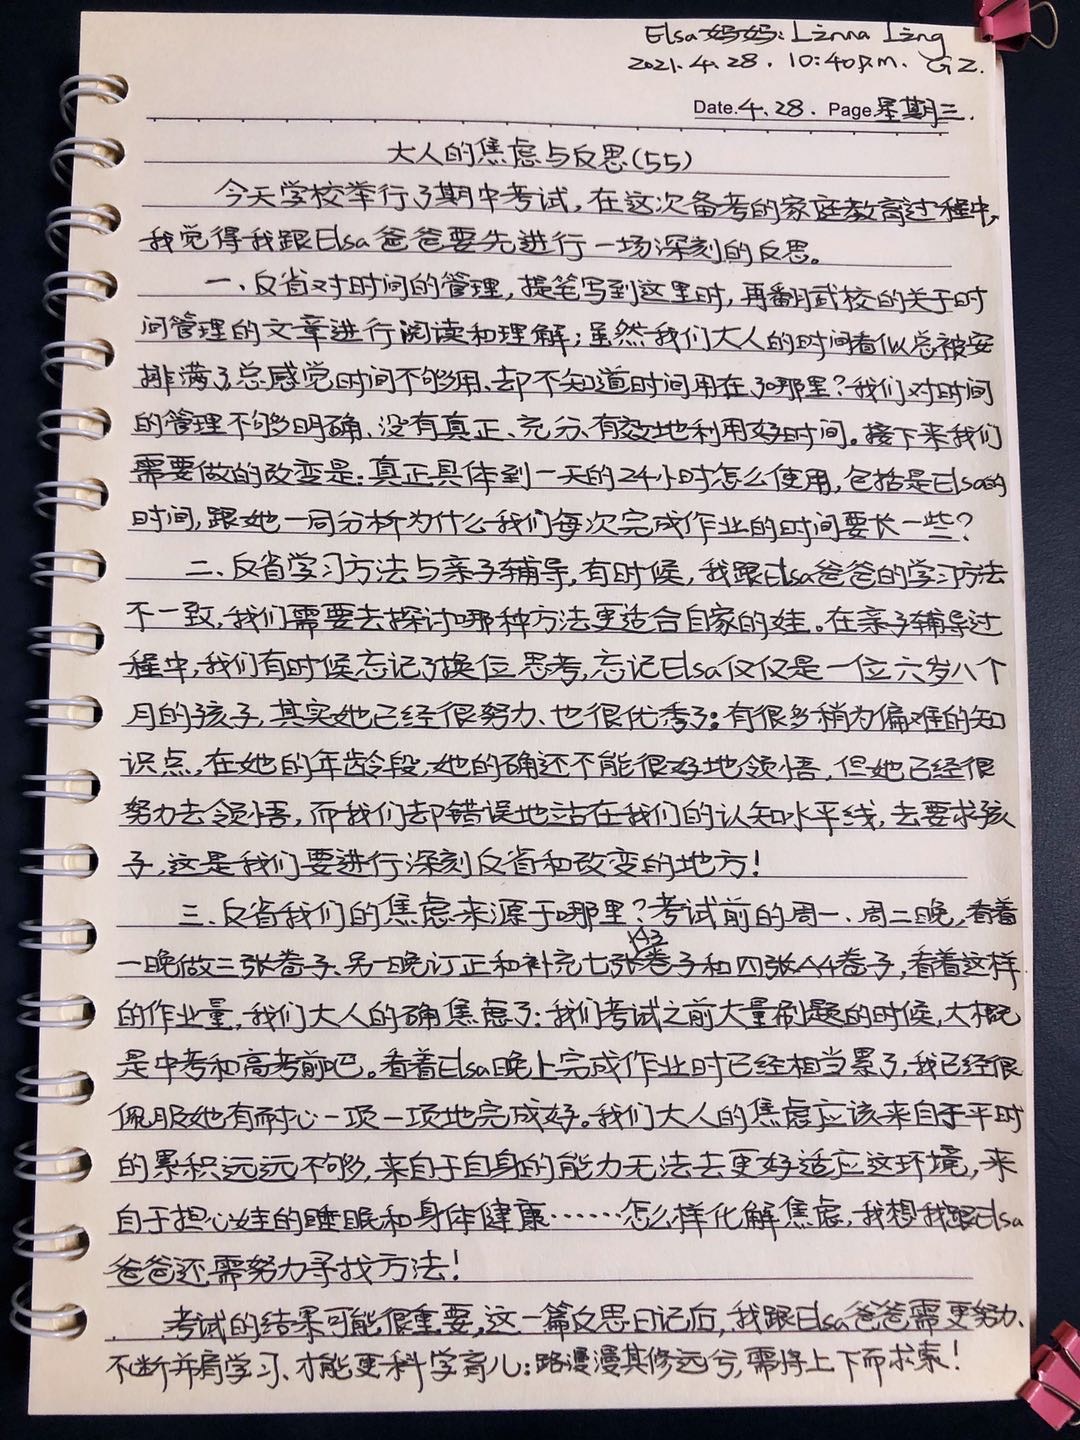 Elsa妈妈: Linna Ling
2021.4.28. 10:40p.m. GZ.
Date.4.28. Page 星期三.
大人的焦虑与反思(55)
今天学校举行了期中考试,在这次备考的家庭教育过程中,
我觉得我跟Elsa爸爸要先进行一场深刻的反思。
一、反省对时间的管理,提笔写到这里时,再翻武校的关于时
间管理的文章进行阅读和理解;虽然我们大人的时间看似总被安
排满了总感觉时间不够用、却不知道时间用在了哪里?我们对时间
的管理不够明确、没有真正、充分、有效地利用好时间。接下来我们
需要做的改变是:真正具体到一天的24小时怎么使用,包括是Elsa的
时间,跟她一同分析为什么我们每次完成作业的时间要长一些?
二、反省学习方法与亲子辅导,有时候,我跟Elsa爸爸的学习方法
不一致,我们需要去探讨哪种方法更适合自家的娃。在亲子辅导过
程中,我们有时候忘记了换位思考,忘记Elsa仅仅是一位六岁八个
月的孩子,其实她已经很努力、也很优秀了:有很多稍为偏难的知
识点,在她的年龄段,她的确还不能很好地领悟,但她已经很
努力去领悟,而我们却错误地站在我们的认知水平线,去要求孩
子,这是我们要进行深刻反省和改变的地方!
三、反省我们的焦虑来源于哪里?考试前的周一、周二晚,看着
一晚做三张卷子、另一晚订正和补充七张A3卷子和四张A4卷子,看着这样
的作业量,我们大人的确焦虑了:我们考试之前大量刷题的时候,大概
是中考和高考前吧。看着Elsa晚上完成作业时已经相当累了,我已经很
佩服她有耐心一项一项地完成好。我们大人的焦虑应该来自于平时
的累积远远不够,来自于自身的能力无法去更好适应这环境,来
自于担心娃的睡眠和身体健康……怎么样化解焦虑,我想我跟Elsa
爸爸还需努力寻找方法!
考试的结果可能很重要,这一篇反思日记后,我跟Elsa爸爸需更努力、
不断并肩学习、才能更科学育儿:路漫漫其修远兮,需将上下而求索!